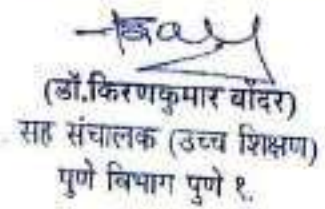 (डॉ.किरणकुमार बोंदर)
सह संचालक (उच्च शिक्षण)
पुणे विभाग पुणे १.